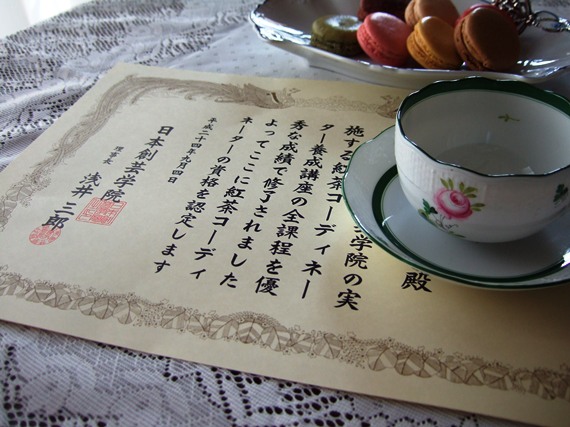 殿
学院の実
施する紅茶コーディネー
ター養成講座の全課程を優
秀な成績で修了されました
よってここに紅茶コーディ
ネーターの資格を認定します
平成二十四年九月四日
日本創芸学院
理事長 浅井三郎